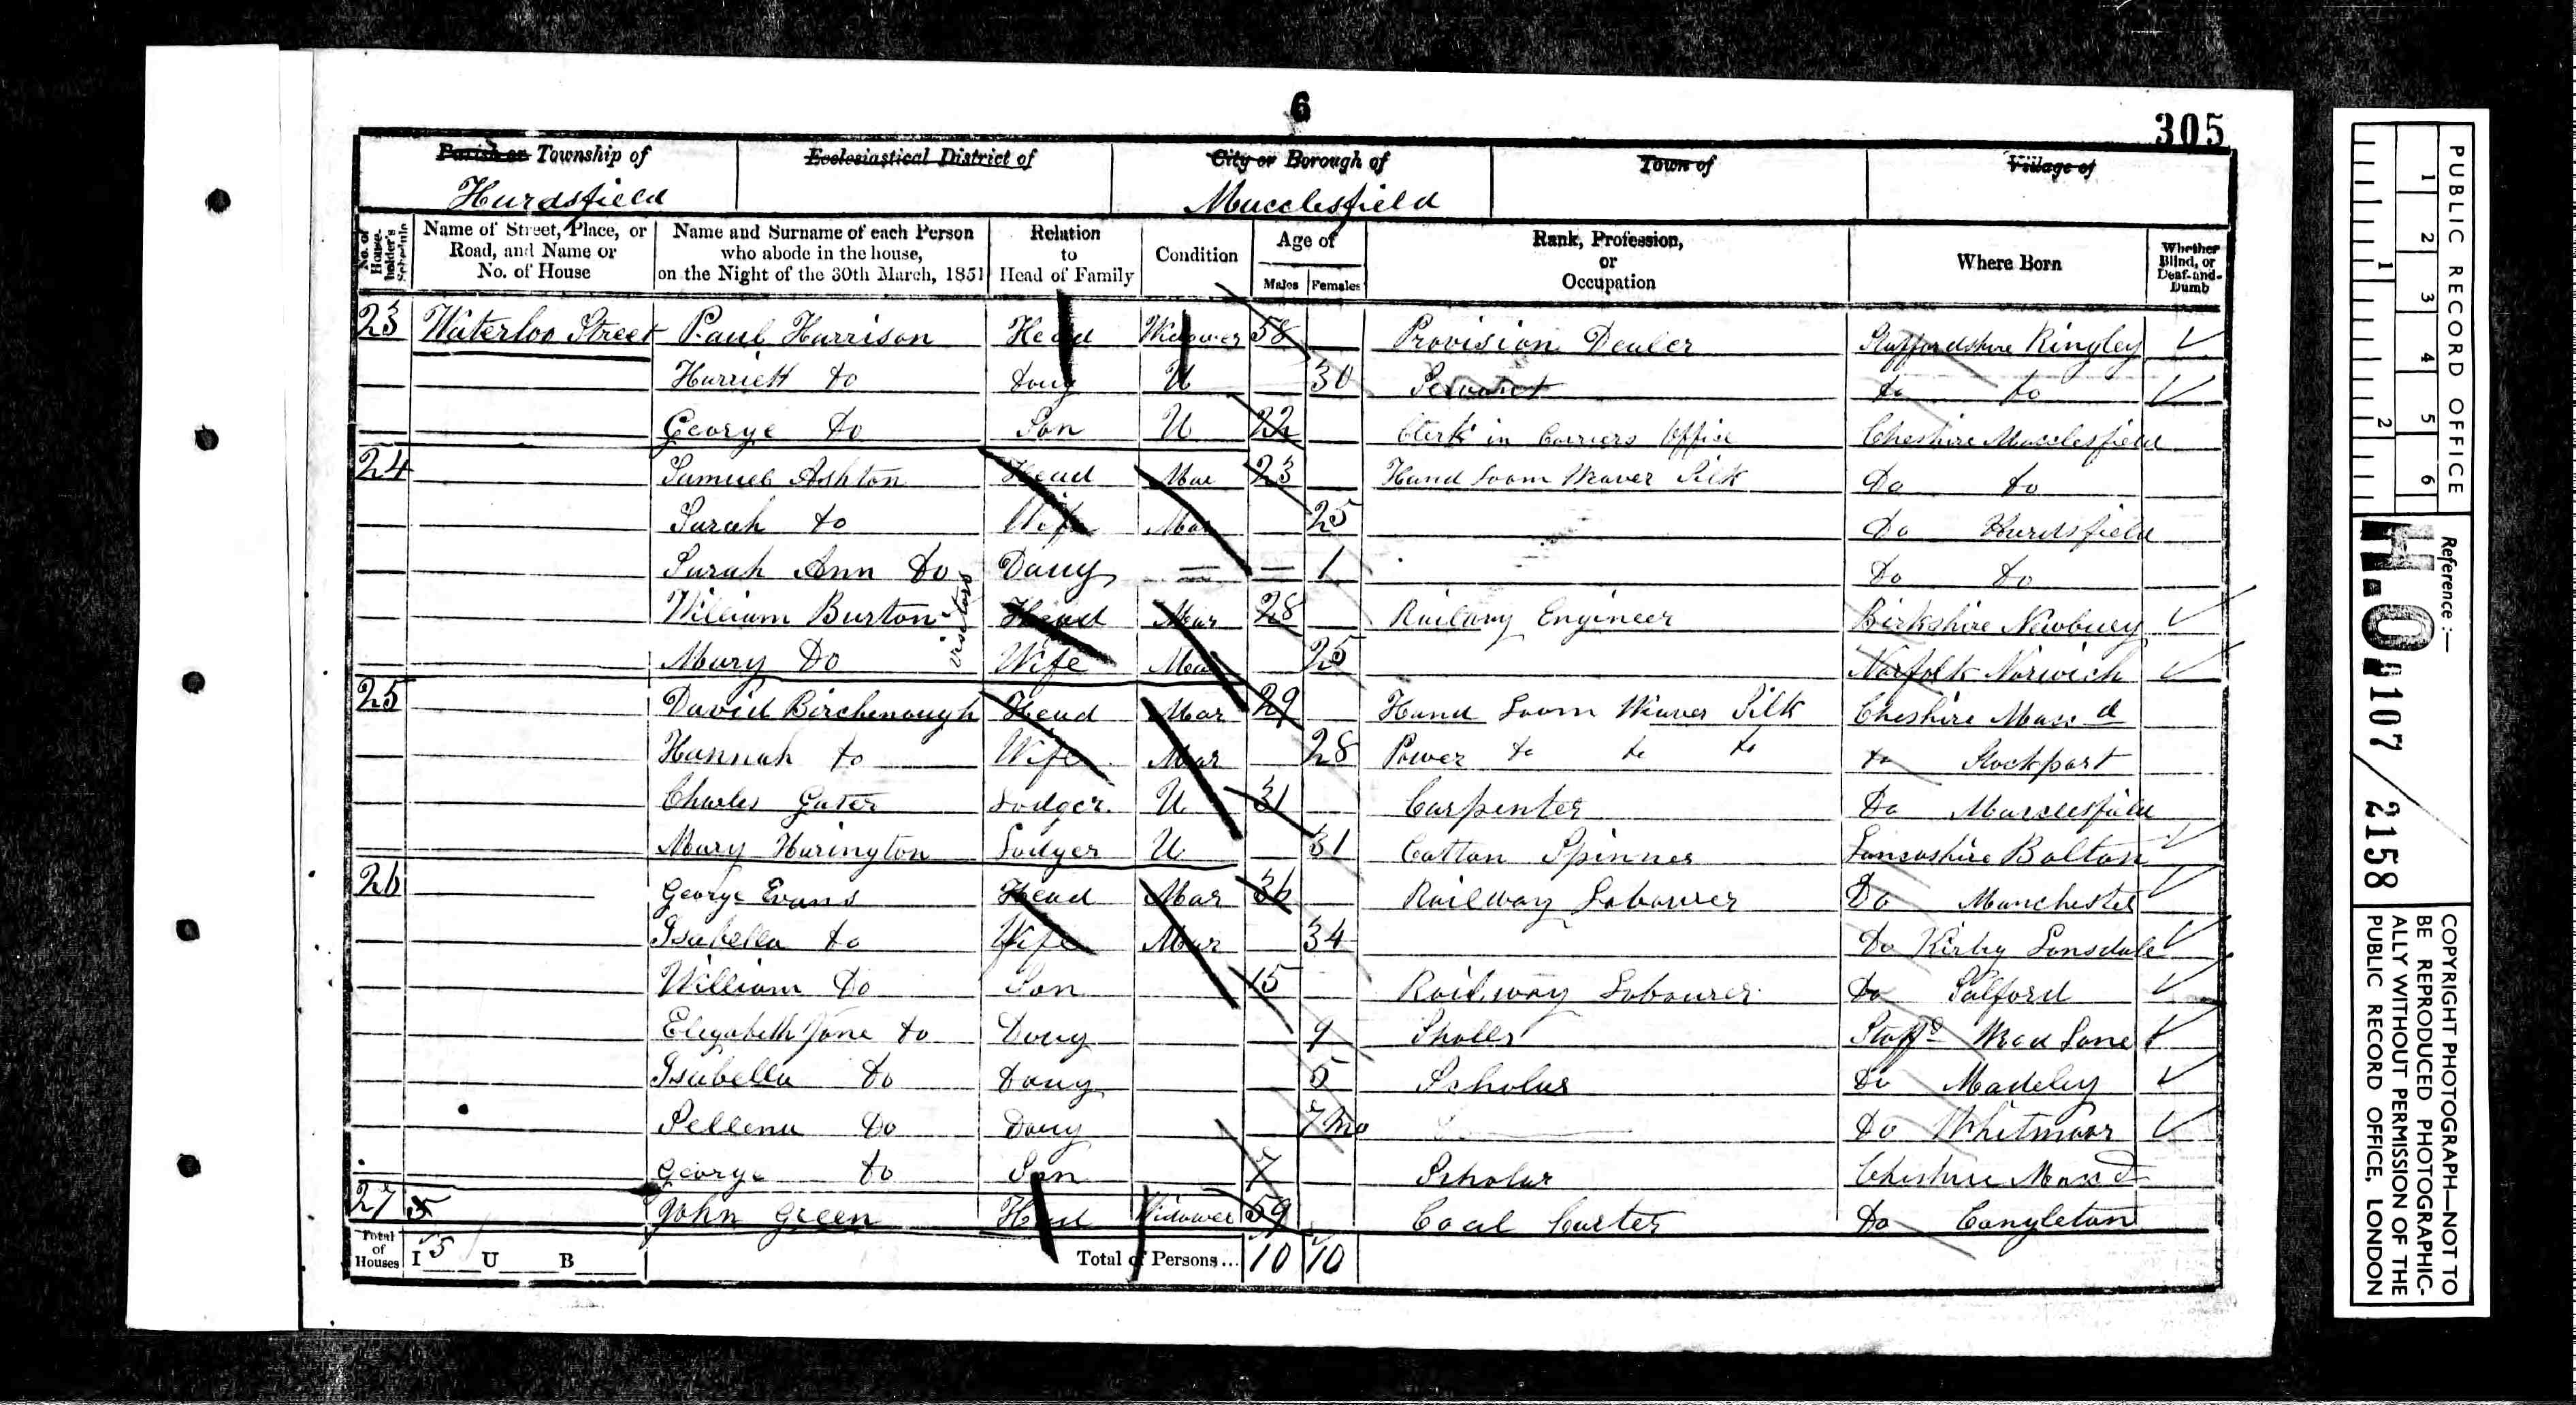 6
305
Parish or Township of
Ecclesiastical District of
City or Borough of
Town of
Village of
Hurdsfield
Macclesfield
No. of House-holder's Schedule
Name of Street, Place, or Road, and Name or No. of House
Name and Surname of each Person who abode in the house, on the Night of the 30th March, 1851
Relation to Head of Family
Condition
Age of
Males
Females
Rank, Profession, or Occupation
Where Born
Whether Blind, or Deaf-and-Dumb
23 Waterloo Street Paul Harrison Head Widower 58 Provision Dealer Staffordshire Ringley
Harriett Do Daug U 30 Servant Do Do
George Do Son U 22 Clerk in Carriers Office Cheshire Macclesfield
24 Samuel Ashton Head Mar 23 Hand Loom Weaver Silk Do Do
Sarah Do Wife Mar 25 Do Hurdsfield
Sarah Ann Do Daug 1 Do Do
visitors
William Burton Head Mar 28 Railway Engineer Birkshire Newbury
Mary Do Wife Mar 25 Norfolk Norwich
25 David Birchenough Head Mar 29 Hand Loom Weaver Silk Cheshire Macc d
Hannah Do Wife Mar 28 Power Do Do Do Do Stockport
Charles Gater Lodger U 31 Carpenter Do Macclesfield
Mary Harington Lodger U 31 Cotton Spinner Lancashire Bolton
26 George Evans Head Mar 36 Railway Labourer Do Manchester
Isabella Do Wife Mar 34 Do Kirby Lonsdale
William Do Son 15 Railway Labourer Do Salford
Elizabeth Jane Do Daug 9 Staffd Lane
Isabella Do Daug 5 Scholar Do Madeley
Sellena Do Daug 7 mo Do Whitmoor
George Do Son 7 Scholar Cheshire Macc d
27 John Green Head Widower 59 Coal Carter Do Congleton
Total of Houses I 5 U B Total of Persons... 10 10
PUBLIC RECORD OFFICE
1 2 3 4 5 6
1 2
Reference:—
H.O. 107 / 2158
COPYRIGHT PHOTOGRAPH—NOT TO
BE REPRODUCED PHOTOGRAPHIC-
ALLY WITHOUT PERMISSION OF THE
PUBLIC RECORD OFFICE, LONDON